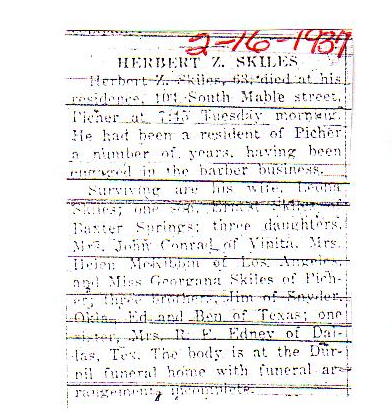 2-16-1937
HERBERT Z. SKILES
Herbert Z. Skiles, 63, died at his
residence, 104 South Mable street,
Picher at 7:45 Tuesday morning.
He had been a resident of Picher
a number of years, having been
engaged in the barber business.
Surviving are his wife, Leona
Skiles; one son, Skiles of
Baxter Springs; three daughters,
Mrs. John Conrad of Vinita, Mrs.
Helen McKibbin of Los Angeles,
and Miss Georgana Skiles of Pich-
er; three brothers, Jim of Snyder,
Okla., Ed and Ben of Texas; one
sister, Mrs. R. E. Edney of Dal-
las, Tex. The body is at the Dur-
nil funeral home with funeral ar-
rangements incomplete.